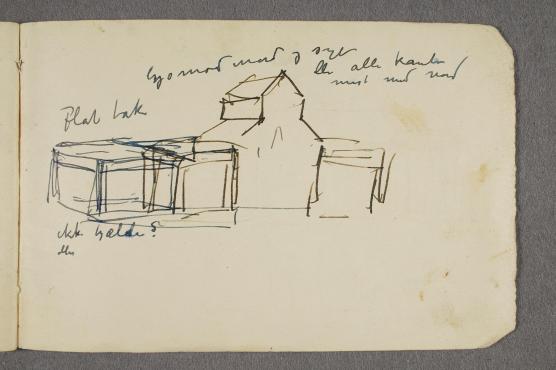 Lys mod nord og syd
eller alle kanter
mest mod nord
Flat tak
ikke kjælder?
eller